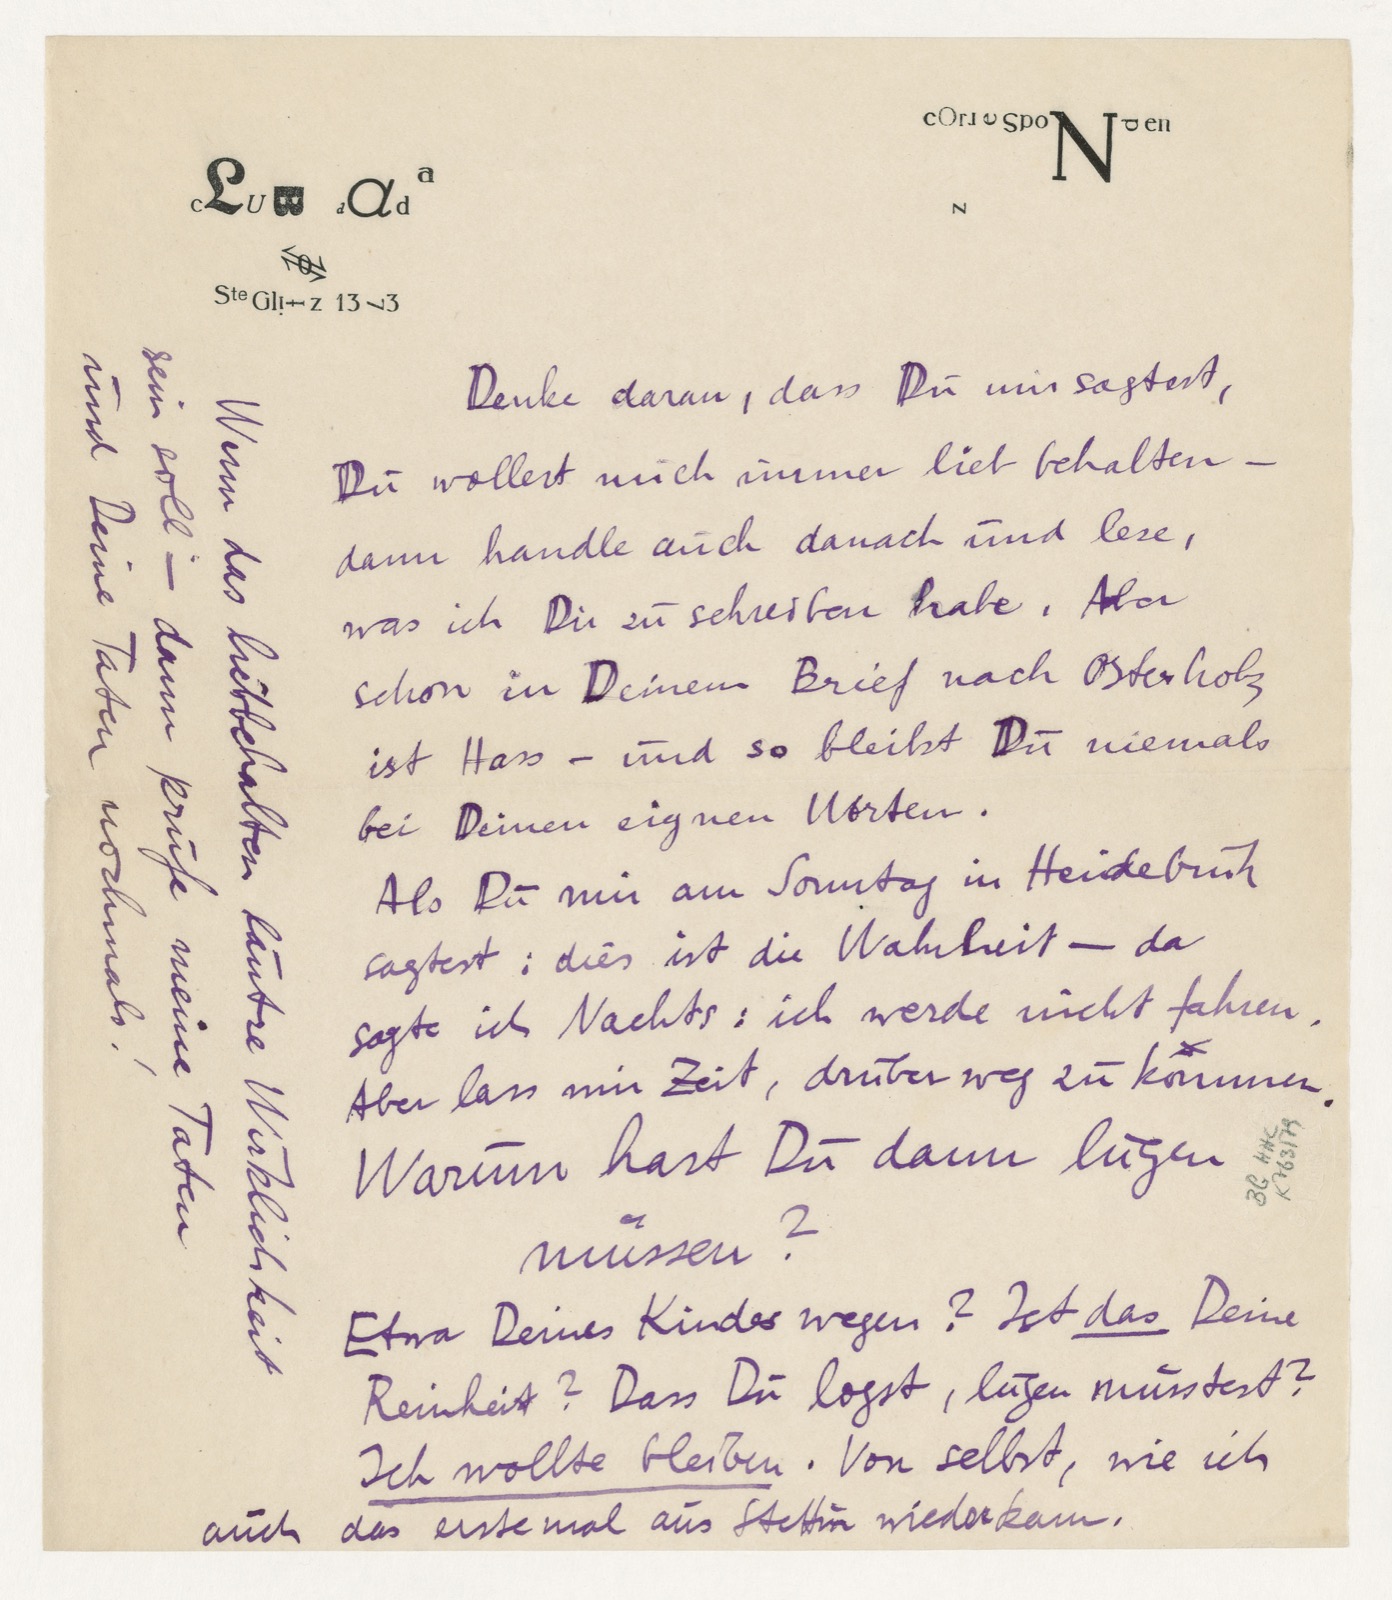 cLUB dada
cOrresPoNden
z
SteGlitz 1373
Denke daran, dass Du mir sagtest,
Du wollest mich immer lieb behalten –
dann handle auch danach und lese,
was ich Dir zu schreiben habe. Aber
schon in Deinem Brief nach Osterholz
ist Hass – und so bleibst Du niemals
bei Deinen eignen Worten.
Als Du mir am Sonntag in Heidebrink
sagtest: dies ist die Wahrheit – da
sagte ich Nachts: ich werde nicht fahren.
Aber lass mir Zeit, drüber weg zu kommen.
Warum hast Du dann lügen
müssen?
Etwa Deines Kindes wegen? Ist das Deine
Reinheit? Dass Du logst, lügen müsstest?
Ich wollte bleiben. Von selbst, wie ich
auch das erstemal aus Stettin wiederkam.
Wenn das liebbehalten lautre Wirklichkeit
sein soll – dann prüfe meine Taten
und Deine Taten nochmals!
BG HHC
K 763/79